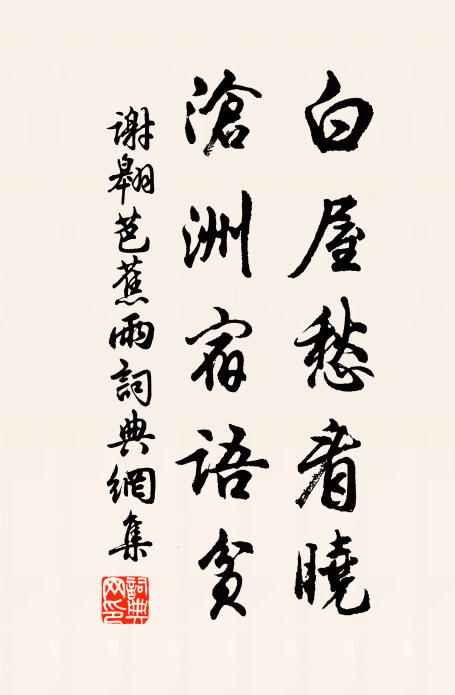 白屋愁看曉
滄洲宿語貧
謝翱芭蕉雨詞典網集
詞典網印